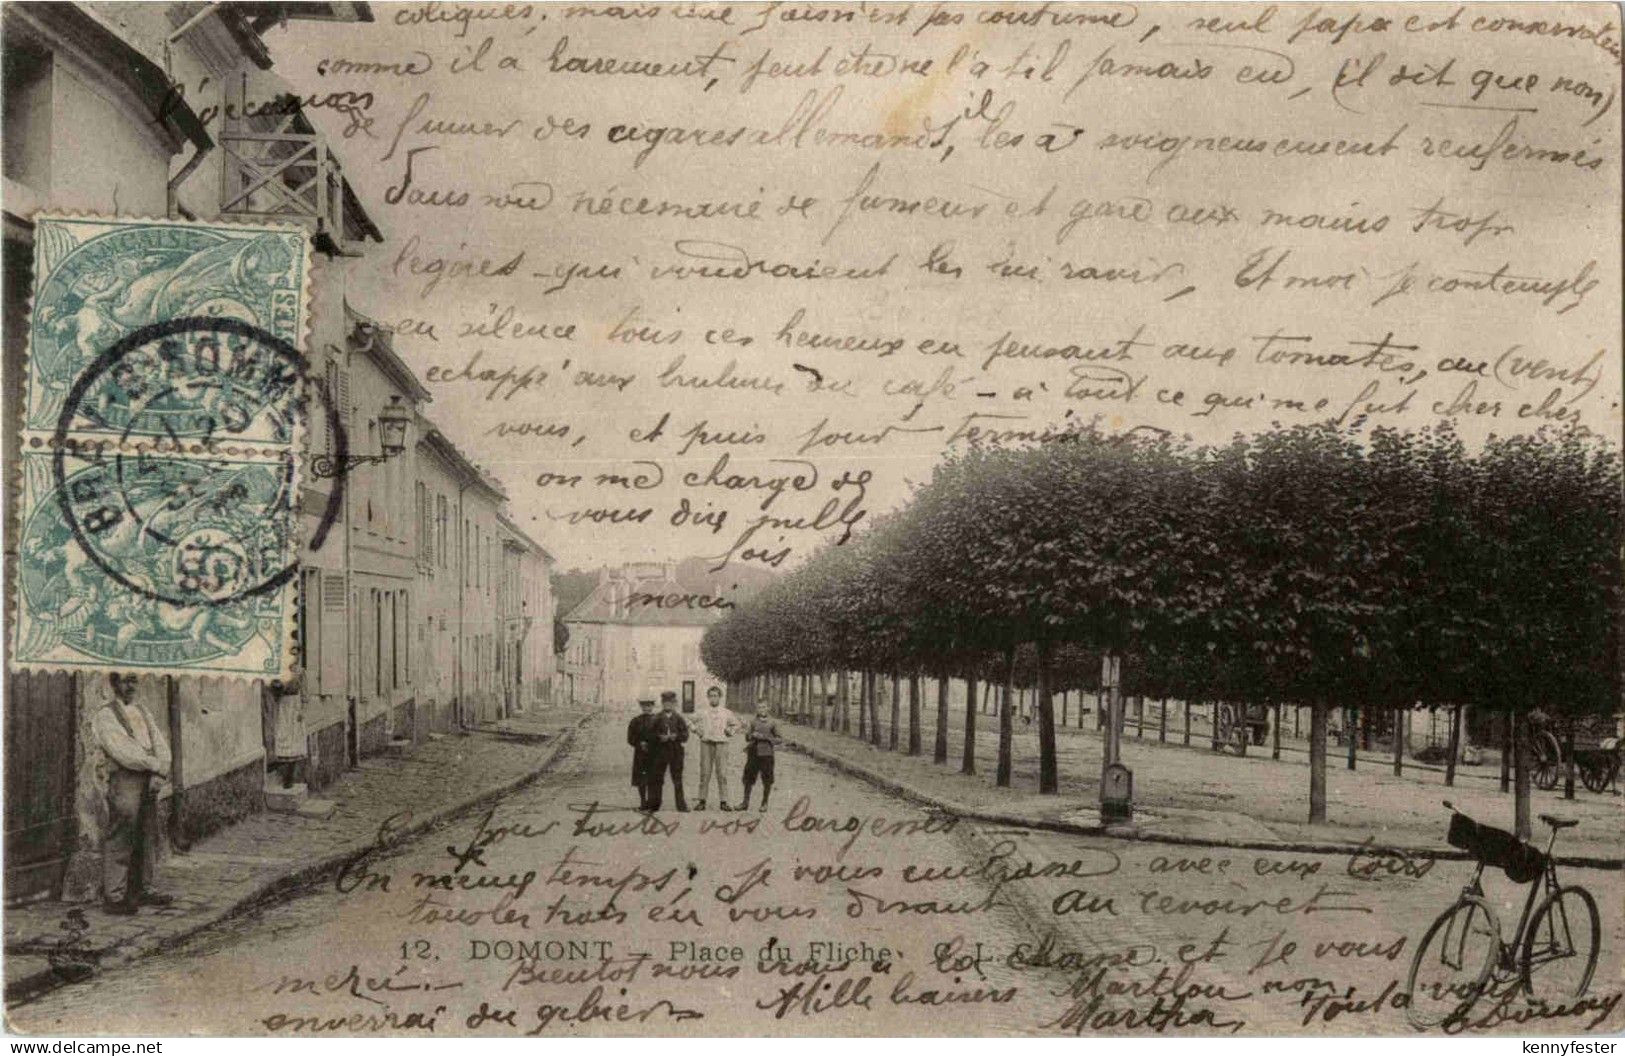 coliques, mais une fois n'est pas coutume, seul papa est conservateur
comme il a rarement, peut être ne l'a t il jamais eu, (il dit que non)
l'occasion
de fumer des cigares allemands, il les a soigneusement renfermés
dans son nécessaire de fumeur et gare aux mains trop
légères qui voudraient les lui ravir, Et moi je contemple
en silence tous ces heureux en pensant aux tomates, au (vent)
echappé aux brulures du café - à tout ce qui me fut cher chez
vous, et puis pour terminer
on me charge de
vous dire mille
fois
merci
pour toutes vos largesses.
En même temps, je vous embrasse avec eux tous
tous les trois en vous disant au revoir et
12. DOMONT — Place du Fliche. C. L. C.
merci. - Bientôt nous irons à la chasse et je vous
enverrai du gibier Mille baisers Marthou non
Martha, Tout à vous
FRANÇAISE
POSTES
BREY-S-SOMME